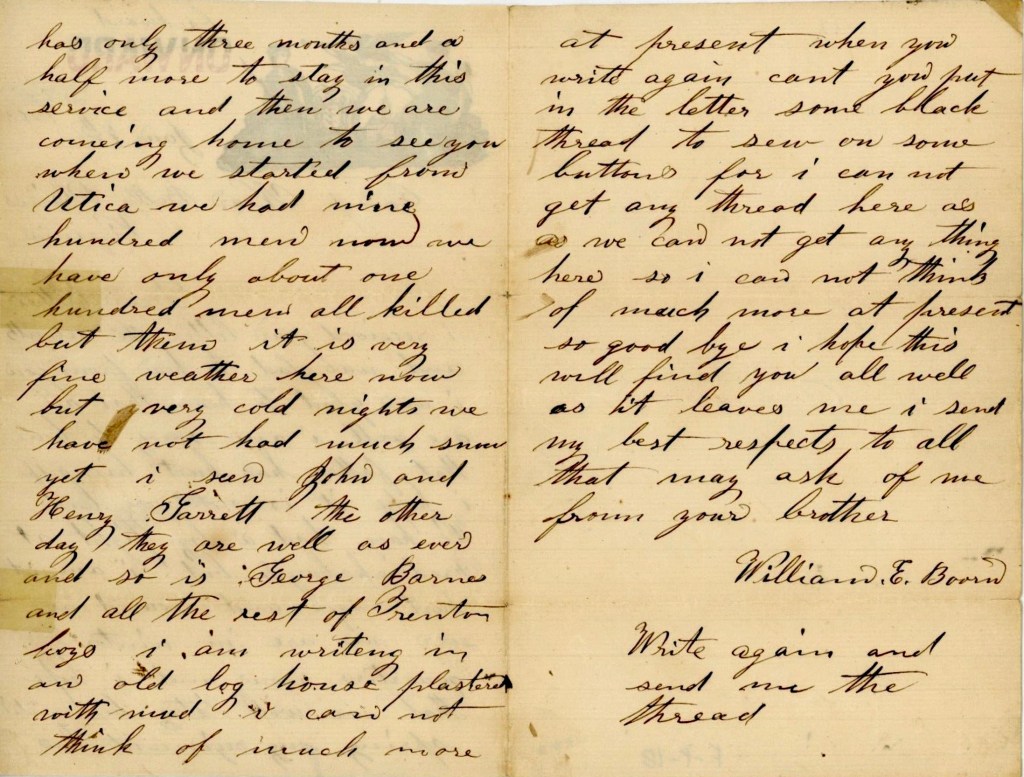 has only three months and a
half more to stay in this
service and then we are
comeing home to see you
when we started from
Utica we had nine
hundred men now we
have only about one
hundred men all killed
but them it is very
fine weather here now
but very cold nights we
have not had much snow
yet i seen John and
Henry Garrett the other
day they are well as ever
and so is George Barnes
and all the rest of Trenton
boys i am writeng in
an old log house plastered
with mud i can not
think of much more
at present when you
write again cant you put
in the letter some black
thread to sew on some
buttons for i can not
get any thread here as
as we can not get any thing
here so i can not think
of much more at present
so good bye i hope this
will find you all well
as it leaves me i send
my best respects to all
that may ask of me
from your brother
William. E. Boorn
Write again and
send me the
thread